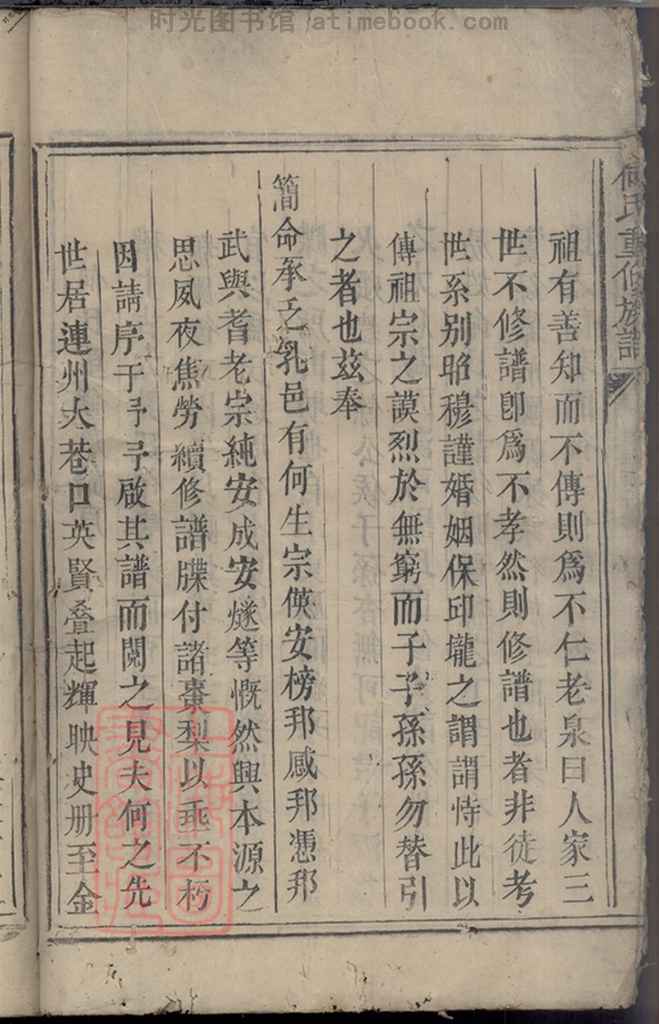 时光图书馆 / atimebook.com
何氏重修族譜
祖有善知而不傳則爲不仁老泉曰人家三
世不修譜卽爲不孝然則修譜也者非徒考
世系别昭穆謹婚姻保邱壠之謂謂恃此以
傳祖宗之謨烈於無窮而子子孫孫勿替引
之者也茲奉
簡命承乏乳邑有何生宗偀安榜邦感邦憑邦
武與耆老宗純安成安燧等慨然興本源之
思夙夜焦勞續修譜牒付諸棗梨以垂不朽
因請序于予予啟其譜而閱之見夫何之先
世居連州大巷口英賢叠起輝映史册至金